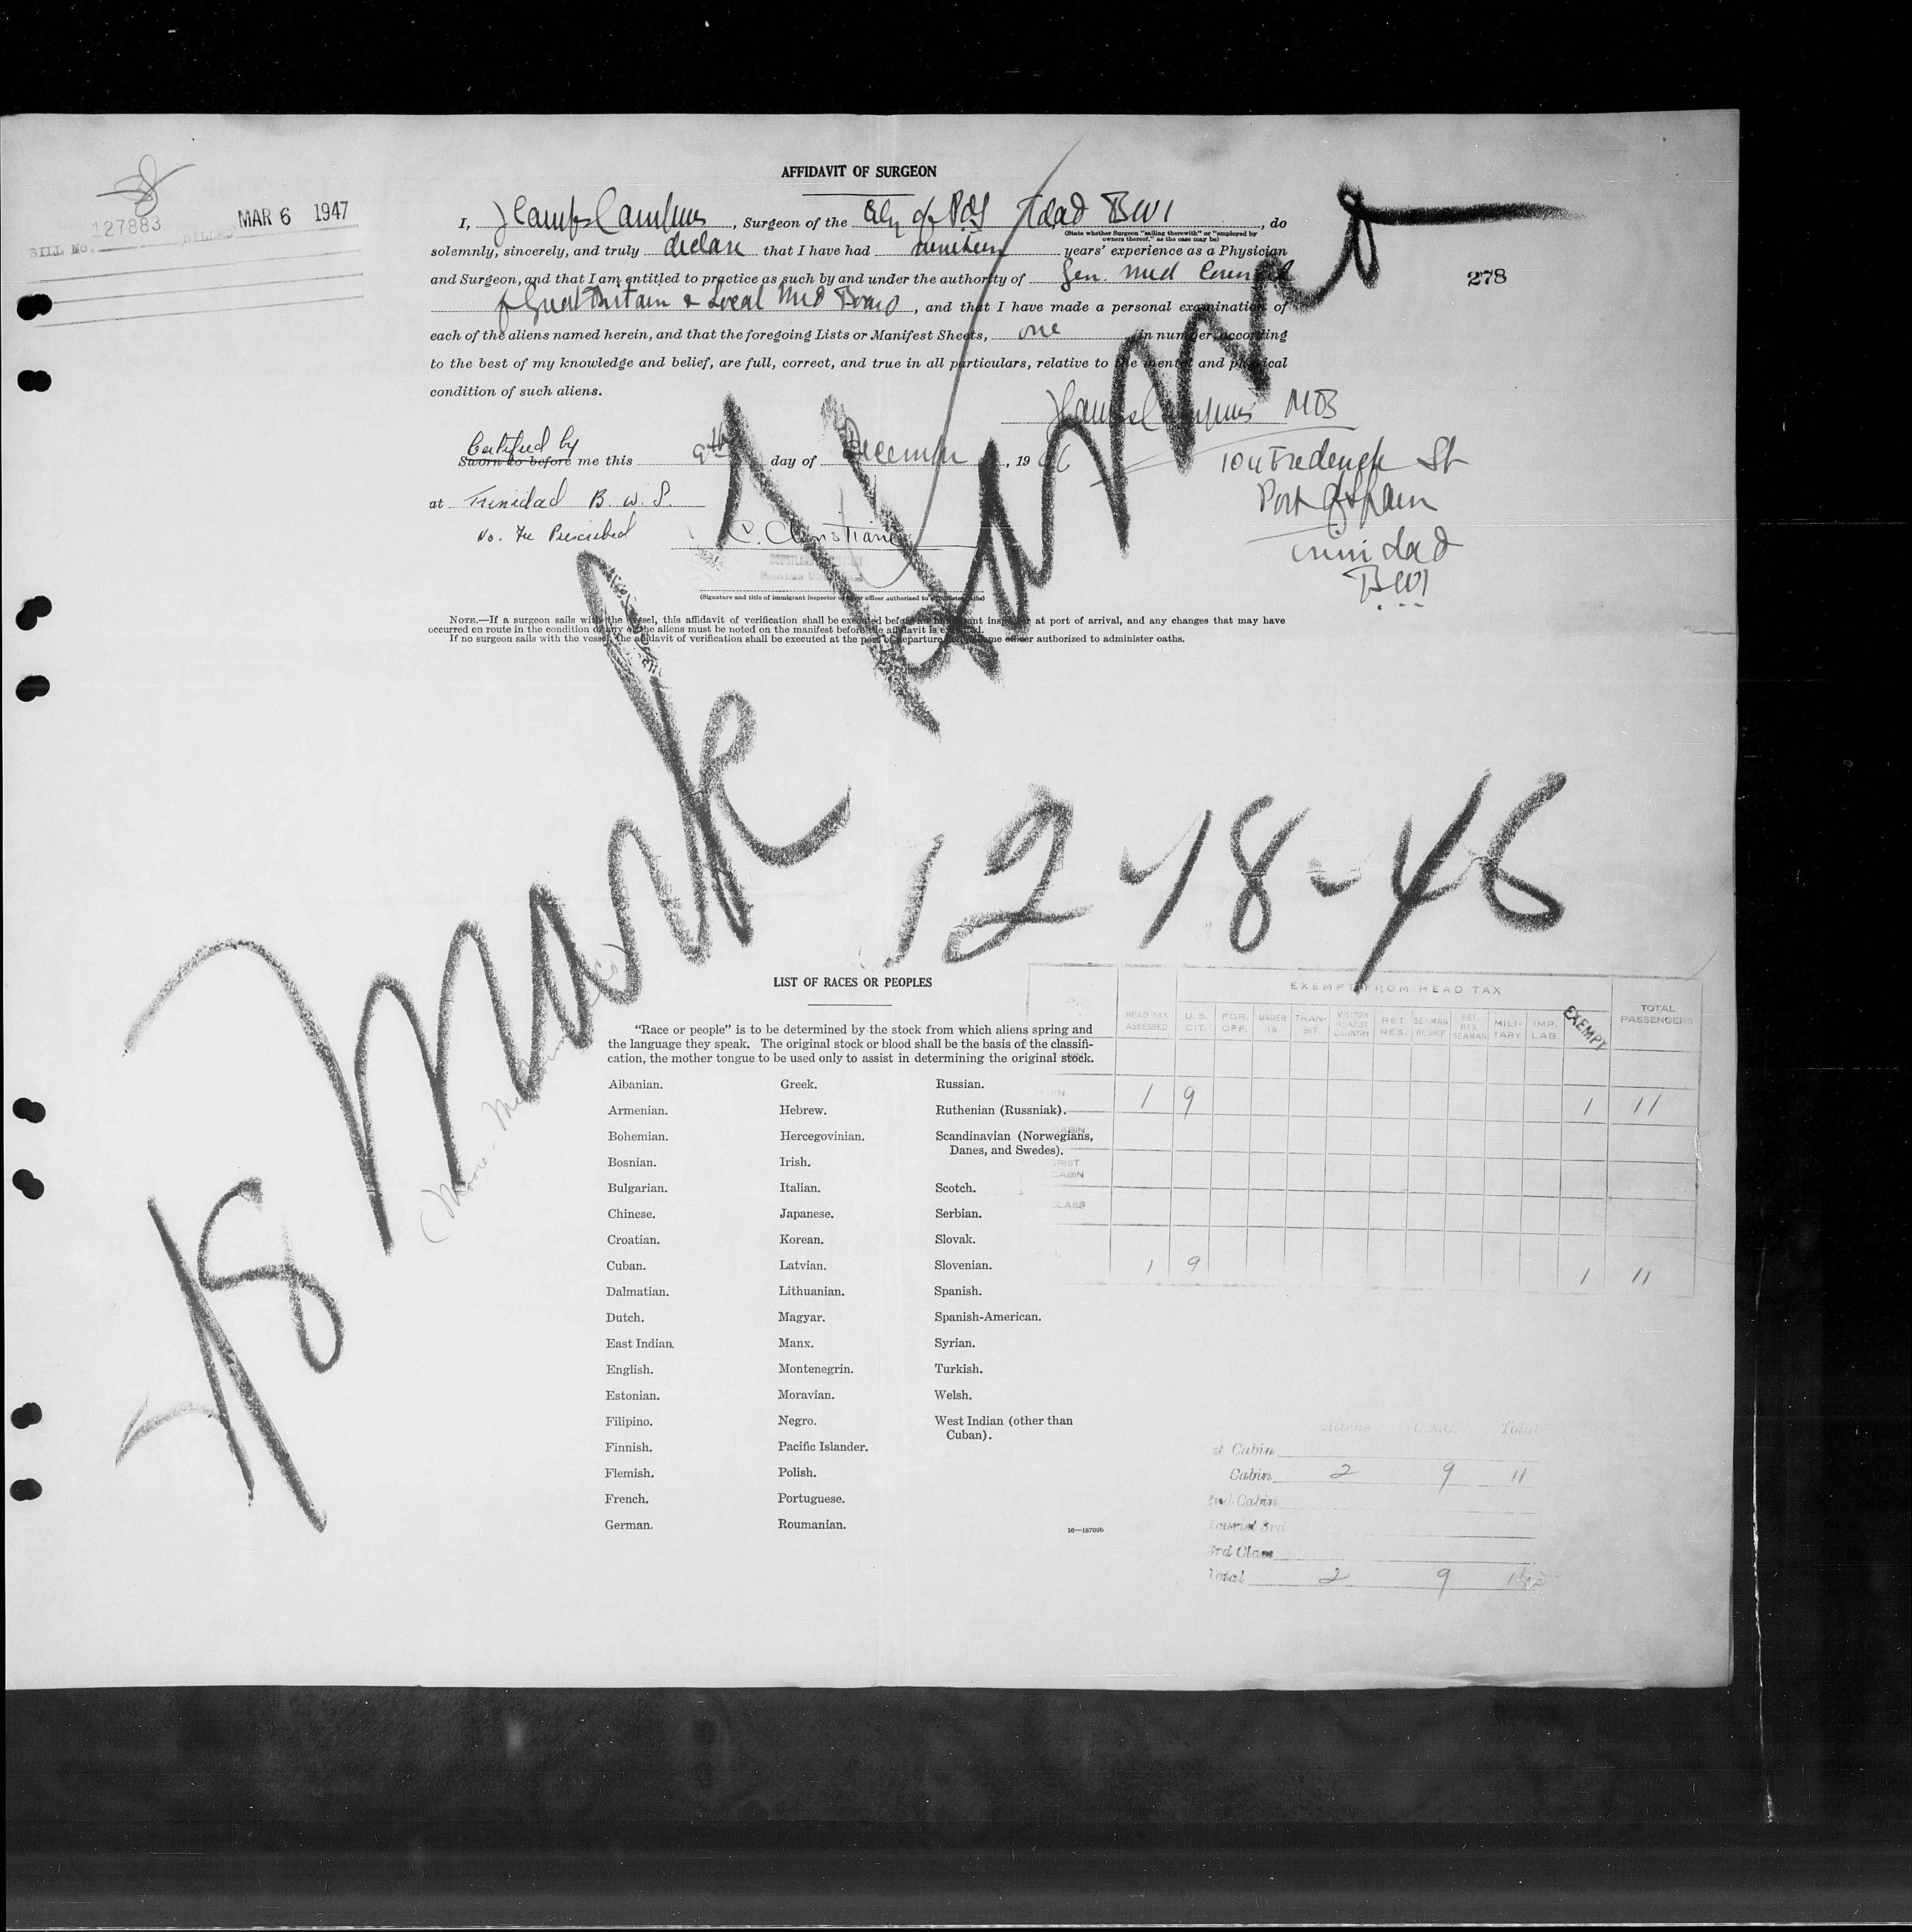 AFFIDAVIT OF SURGEON
127883
BILL No. BILLED MAR 6 1947
I, , Surgeon of the City of POS T'dad BWI, do
(State whether Surgeon "sailing therewith" or "employed by
owners thereof," as the case may be)
solemnly, sincerely, and truly declare that I have had nineteen years' experience as a Physician
and Surgeon, and that I am entitled to practice as such by and under the authority of Gen. Med Council
of Great Britain & Local Med Board, and that I have made a personal examination of
each of the aliens named herein, and that the foregoing Lists or Manifest Sheets, one in number, according
to the best of my knowledge and belief, are full, correct, and true in all particulars, relative to the mental and physical
condition of such aliens.
278
MB
Certified by
Sworn to before me this 9th day of December, 1946
Frederick St
Port of Spain
Trinidad
BWI
at Trinidad B. W. I.
No. Fee Prescribed
C. Christiani
(Signature and title of immigrant inspector or other officer authorized to administer oaths)
NOTE.—If a surgeon sails with the vessel, this affidavit of verification shall be executed before an immigrant inspector at port of arrival, and any changes that may have
occurred en route in the condition of any of the aliens must be noted on the manifest before the affidavit is executed.
If no surgeon sails with the vessel, the affidavit of verification shall be executed at the port of departure before some officer authorized to administer oaths.
18 Mark
12-18-46
LIST OF RACES OR PEOPLES
"Race or people" is to be determined by the stock from which aliens spring and
the language they speak. The original stock or blood shall be the basis of the classifi-
cation, the mother tongue to be used only to assist in determining the original stock.
Albanian.
Armenian.
Bohemian.
Bosnian.
Bulgarian.
Chinese.
Croatian.
Cuban.
Dalmatian.
Dutch.
East Indian.
English.
Estonian.
Filipino.
Finnish.
Flemish.
French.
German.
Greek.
Hebrew.
Hercegovinian.
Irish.
Italian.
Japanese.
Korean.
Latvian.
Lithuanian.
Magyar.
Manx.
Montenegrin.
Moravian.
Negro.
Pacific Islander.
Polish.
Portuguese.
Roumanian.
Russian.
Ruthenian (Russniak).
Scandinavian (Norwegians,
Danes, and Swedes).
Scotch.
Serbian.
Slovak.
Slovenian.
Spanish.
Spanish-American.
Syrian.
Turkish.
Welsh.
West Indian (other than
Cuban).
16—18709b
EXEMPT FROM HEAD TAX
HEAD TAX ASSESSED U. S. CIT. FOR. OFF. UNDER 16 TRAN- SIT VISITOR NEARBY COUNTRY RET. RES. SEAMAN RESHIP RET. RES. SEAMAN MILI- TARY IMP. LAB. EXEMPT TOTAL PASSENGERS
1 9 1 11
CABIN
CABIN
CLASS
1 9 1 11
Aliens U.S.C. Total
st Cabin
Cabin 2 9 11
3rd Cabin
Tourist 3rd
3rd Class
Total 2 9